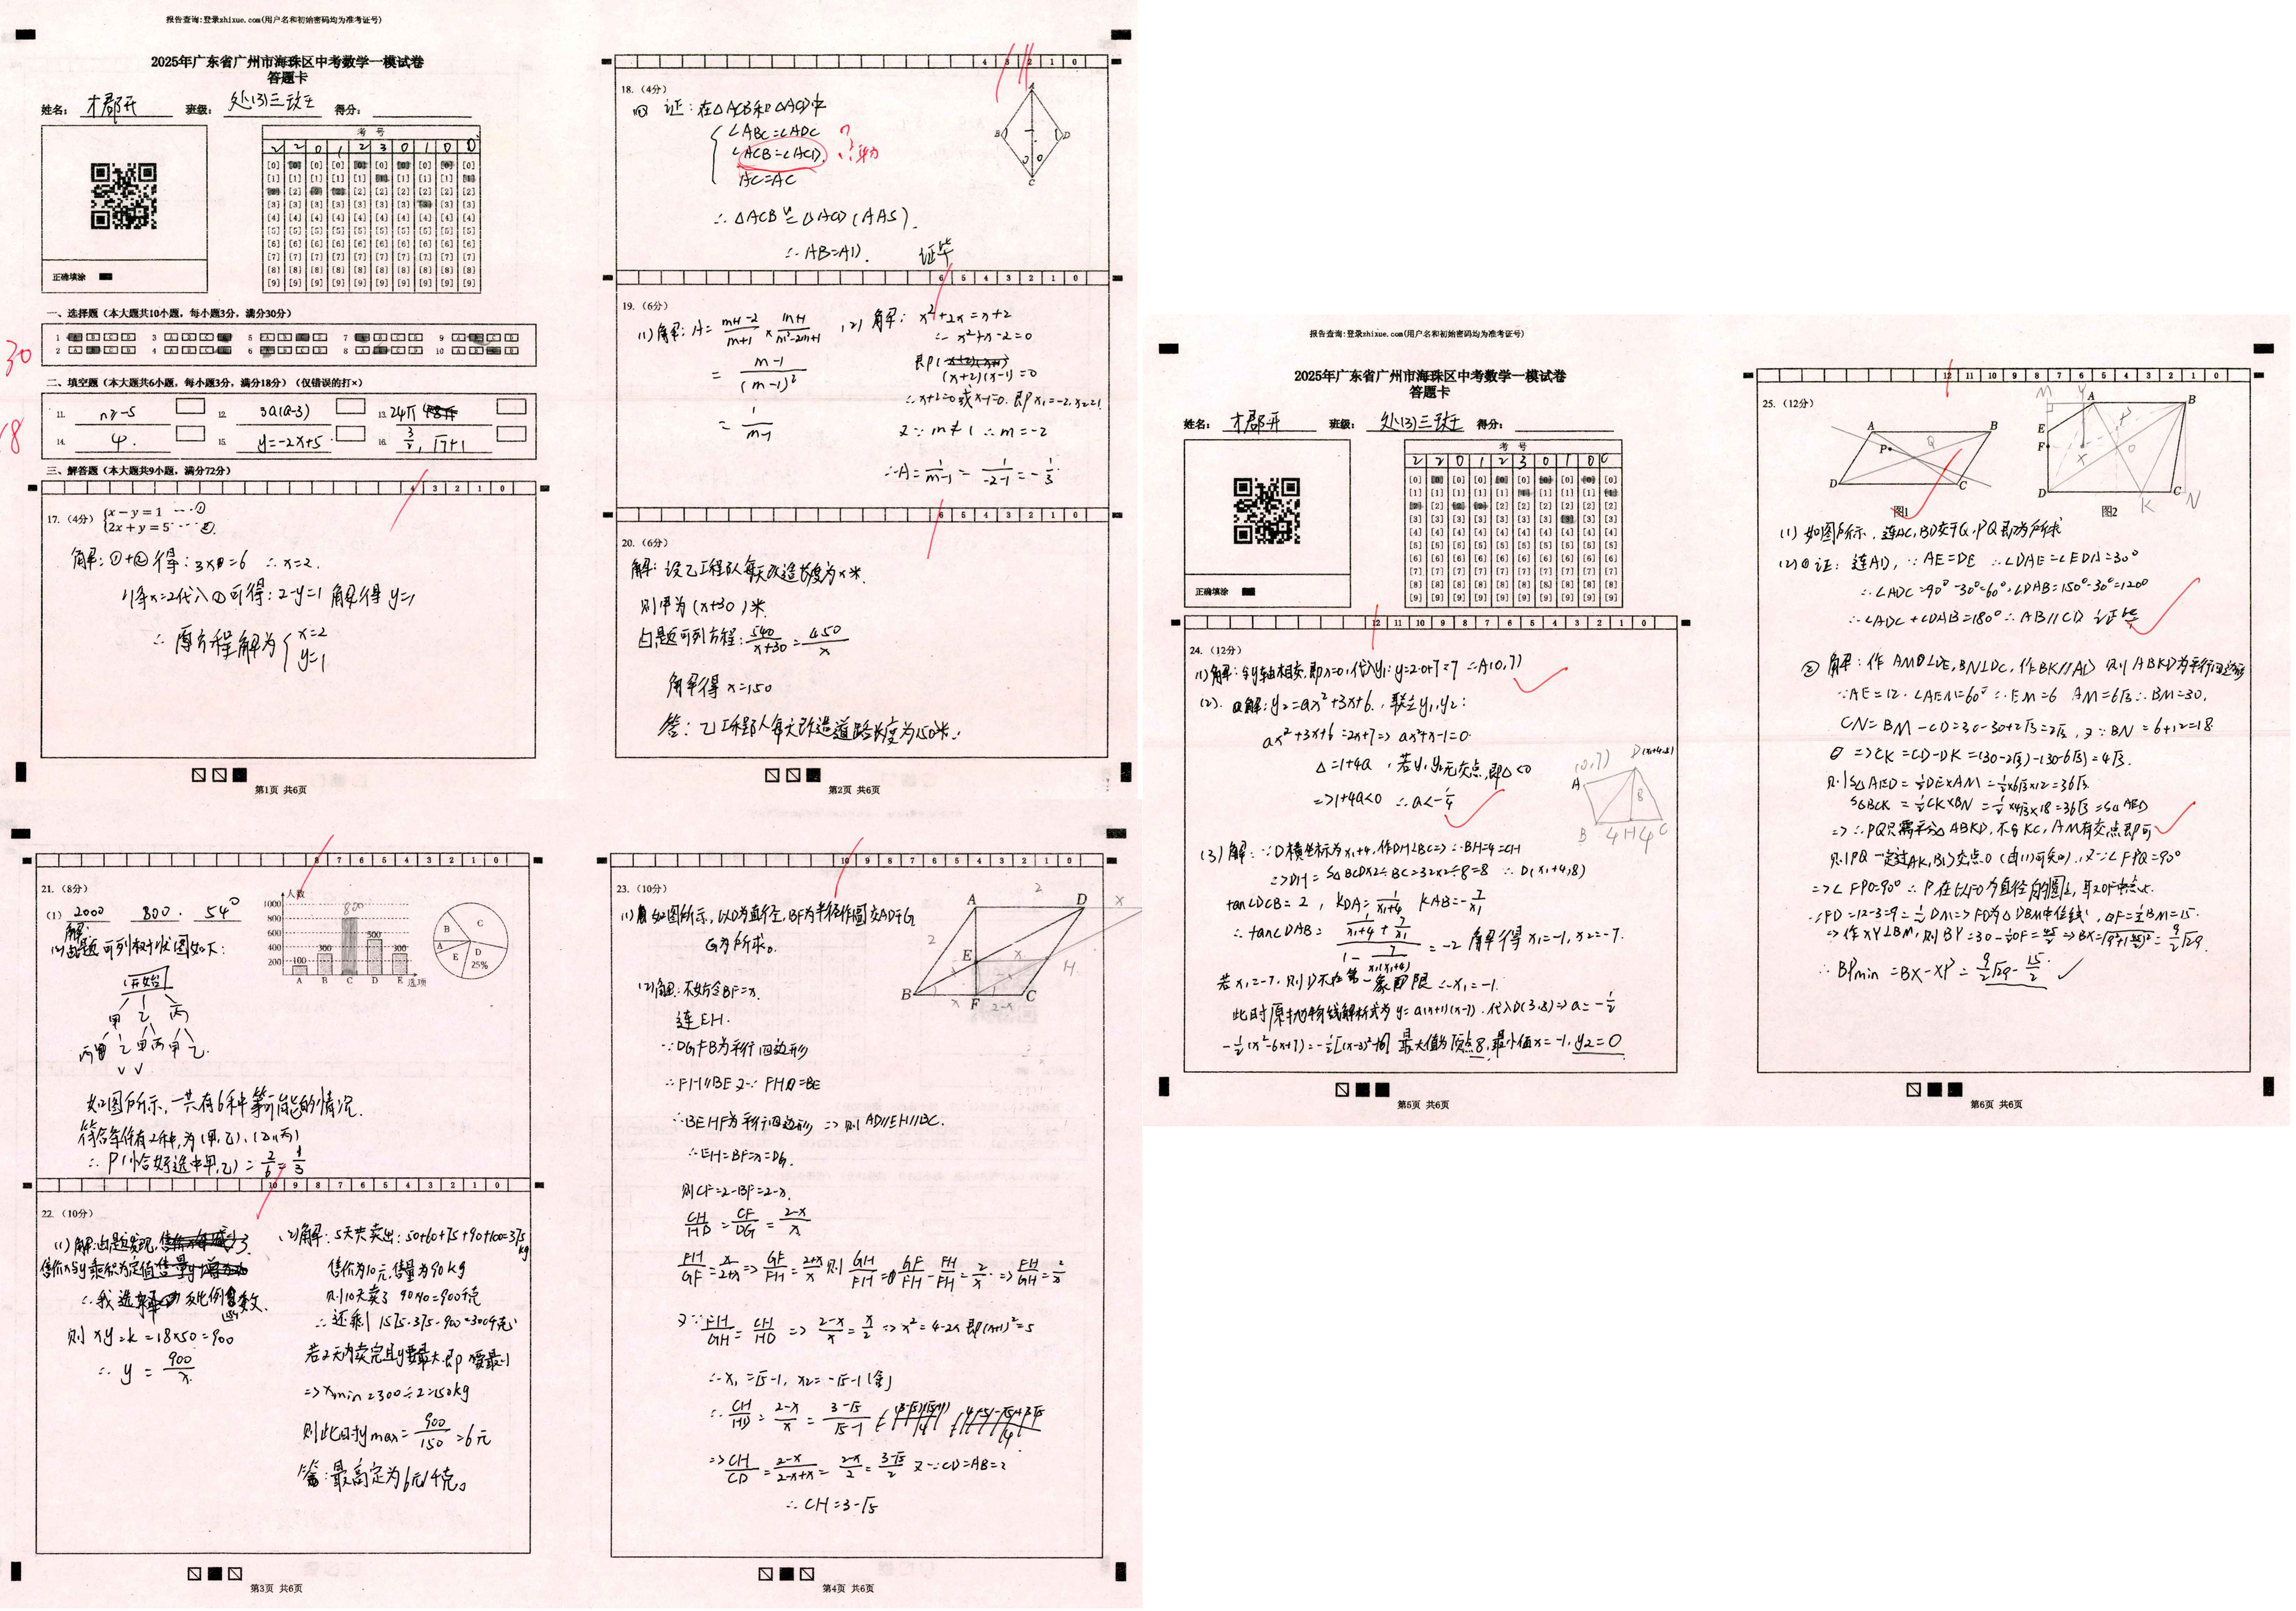 报告查询:登录zhixue.com(用户名和初始密码均为准考证号)
2025年广东省广州市海珠区中考数学一模试卷
答题卡
姓名: 才郡开 班级: 处(3)三班 得分:
考 号
2 2 0 1 2 3 0 1 0 0
正确填涂
一、选择题(本大题共10小题,每小题3分,满分30分)
30
二、填空题(本大题共6小题,每小题3分,满分18分)(仅错误的打×)
18
11. n≥-5 12. 3a(a-3) 13. 24π
14. 4. 15. y=-2x+5 16. 3/2, √7+1
三、解答题(本大题共9小题,满分72分)
4 3 2 1 0
17.(4分) {x-y=1 ---①
{2x+y=5 --- ②
解:①+②得:3x=6 ∴x=2.
将x=2代入①可得:2-y=1 解得y=1
∴原方程解为{x=2
y=1
第1页 共6页
4 3 2 1 0
18.(4分)
证:在△ACB和△ACD中
∠ABC=∠ADC
∠ACB=∠ACD
AC=AC
∴△ACB≌△ACD(AAS).
∴AB=AD. 证毕
A
B D
C
6 5 4 3 2 1 0
19.(6分)
(1)解:A=(m+1-2)/(m+1)×(m+1)/(m²-2m+1)
=(m-1)/(m-1)²
=1/(m-1)
(2)解:x²+2x=x+2
∴x²+x-2=0
即(x+2)(x-1)=0
∴x+2=0或x-1=0.即x₁=-2,x₂=1
又∵m≠1 ∴m=-2
∴A=1/(m-1)=1/(-2-1)=-1/3
6 5 4 3 2 1 0
20.(6分)
解:设乙工程队每天改造长度为x米.
则甲为(x+30)米
由题可列方程:540/(x+30)=450/x
解得x=150
答:乙工程队每天改造道路长度为150米.
第2页 共6页
8 7 6 5 4 3 2 1 0
21.(8分)
(1) 2000 800. 54°
解:
(2)由题可列树状图如下:
开始
甲 乙 丙
乙 丙 甲 丙 甲 乙
如图所示,一共有6种等可能的情况.
符合条件有2种,为(甲,乙),(乙,丙)
∴P(恰好选中甲,乙)=2/6=1/3
人数
1000
800
600
400
200
100 300 800 500 300
A B C D E 选项
B C A E D 25%
10 9 8 7 6 5 4 3 2 1 0
22.(10分)
(1)解:由题发现,
售价x与y乘积为定值
∴我选择 反比例函数.
则 xy=k=18×50=900
∴y=900/x
(2)解:5天共卖出:50+60+75+90+100=375kg
售价为10元,售量为90kg
则10天卖了 90×10=900千克
∴还剩 1575-375-900=300千克
若2天内卖完且y要最大,即x要最小
=>xmin=300÷2=150kg
则此时ymax=900/150=6元
答:最高定为6元/千克。
第3页 共6页
10 9 8 7 6 5 4 3 2 1 0
23.(10分)
(1)如图所示,以D为直径,BF为半径作圆交AD于G
G为所求。
(2)解:不妨令BF=x.
连EH.
∵DGFB为平行四边形
∴FH∥BE 又∵FH=BE
∴BEHF为平行四边形 => 则AD∥EH∥BC.
∴EH=BF=x=DG.
则CF=2-BF=2-x.
CH/HD=CF/DG=(2-x)/x
FH/GF=x/(2+x)=>GF/FH=(2+x)/x 则GH/FH=GF/FH-FH/FH=2/x.=>FH/GH=x/2
又∵FH/GH=CH/HD=>(2-x)/x=x/2=>x²=4-2x即(x+1)²=5
∴x₁=√5-1, x₂=-√5-1(舍)
∴CH/HD=(2-x)/x=(3-√5)/(√5-1)
=>CH/CD=(2-x)/(2-x+x)=(2-x)/2=(3-√5)/2 又∵CD=AB=2
∴CH=3-√5
A D E H B F C
第4页 共6页
报告查询:登录zhixue.com(用户名和初始密码均为准考证号)
2025年广东省广州市海珠区中考数学一模试卷
答题卡
姓名: 才郡开 班级: 处(3)三班 得分:
考 号
2 2 0 1 2 3 0 1 0 0
正确填涂
12 11 10 9 8 7 6 5 4 3 2 1 0
24.(12分)
(1)解:与y轴相交,即x=0,代入y₁:y=2·0+7=7 ∴A(0,7)
(2).解:y₂=ax²+3x+6.,联立y₁,y₂:
ax²+3x+6=2x+7=>ax²+x-1=0
△=1+4a ,若y₁y₂无交点,即△<0
=>1+4a<0 ∴a<-1/4
(0,7) D(x₁+4,8)
A 8
B 4 H 4 C
(3)解:∵D横坐标为x₁+4,作DH⊥BC=>∴BH=4=CH
=>DH=S△BCD×2÷BC=32×2÷8=8 ∴D(x₁+4,8)
tan∠DCB=2, kDA=1/(x₁+4) kAB=-7/x₁
∴tan∠DAB=(1/(x₁+4)+7/x₁)/(1-7/(x₁(x₁+4)))=-2 解得x₁=-1,x₂=-7.
若x₁=-7,则D不在第一象限 ∴x₁=-1.
此时原抛物线解析式为y=a(x+1)(x-7).代入D(3,8)=>a=-1/2
-1/2(x²-6x+7)=-1/2[(x-3)²-16] 最大值为顶点8,最小值x=-1,y₂=0
第5页 共6页
12 11 10 9 8 7 6 5 4 3 2 1 0
25.(12分)
A B P Q D C
图1
M Y A B E P F X O D K C N
图2
(1)如图所示,连AC,BD交于Q,PQ即为所求
(2)①证:连AD,∵AE=DE ∴∠DAE=∠EDA=30°
∴∠ADC=90°-30°=60°,∠DAB=150°-30°=120°
∴∠ADC+∠DAB=180°∴AB∥CD 证毕
②解:作AM⊥DE,BN⊥DC,作BK∥AD 则ABKD为平行四边形
∵AE=12.∠AEM=60°∴EM=6 AM=6√3∴BM=30.
CN=BM-CD=30-30+2√3=2√3,又∵BN=6+12=18
=>CK=CD-DK=(30-2√3)-(30-6√3)=4√3.
则S△AED=½DE×AM=½×6√3×12=36√3
S△BCK=½CK×BN=½×4√3×18=36√3=S△AED
=>∴PQ只需平分ABKD,不与KC,AM有交点即可
则PQ一定过AK,BD交点O(由(1)可知),又∵∠FPQ=90°
=>∠FPO=90°∴P在以FO为直径的圆上,取OF中点X.
∵FD=12-3=9=½DM=>FO为△DBM中位线,OF=½BM=15.
=>作XY⊥BM,则BY=30-½OF=45/2=>BX=√(9²+(45/2)²)=9/2√29.
∴BPmin=BX-XP=9/2√29-15/2
第6页 共6页